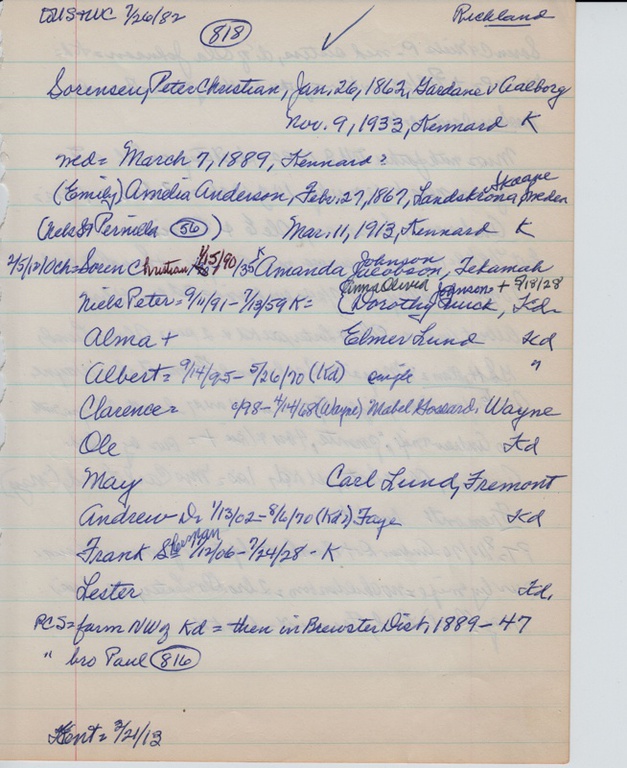 7/26/82 Richland
818 ✓
Sorensen, Peter Christian, Jan. 26, 1862, Gardane v Aalborg
Nov. 9, 1933, Kennard K
med = March 7, 1889, Kennard?
(Emily) Amelia Anderson, Feb. 27, 1867, Landskrona, Skaane Sweden
(Nels & Pernilla 56) Mar. 11, 1913, Kennard K
Ch = Soren Christian 1/15/90 /35 K Amanda Johnson Jacobson, Tekamah
Anna Olivia Johnson + 5/18/28
Niels Peter = 9/11/91 - 7/13/59 K = (Dorothy Quick, Kd
Alma + Elmer Lund Kd
Albert = 9/14/95 - 5/26/70 (Kd) single "
Clarence = c/98 - 4/14/68 (Wayne) Mabel Gossard, Wayne
Ole Kd
May Carl Lund, Fremont
Andrew D = 1/13/02 - 8/6/70 (Kd) Faye Kd
Frank Sherman 7/12/06 - 7/24/28 - K
Lester Kd,
PCS = farm NW of Kd = then in Brewster Dist, 1889 - 47
" bro Paul 816
Kent = 3/21/13